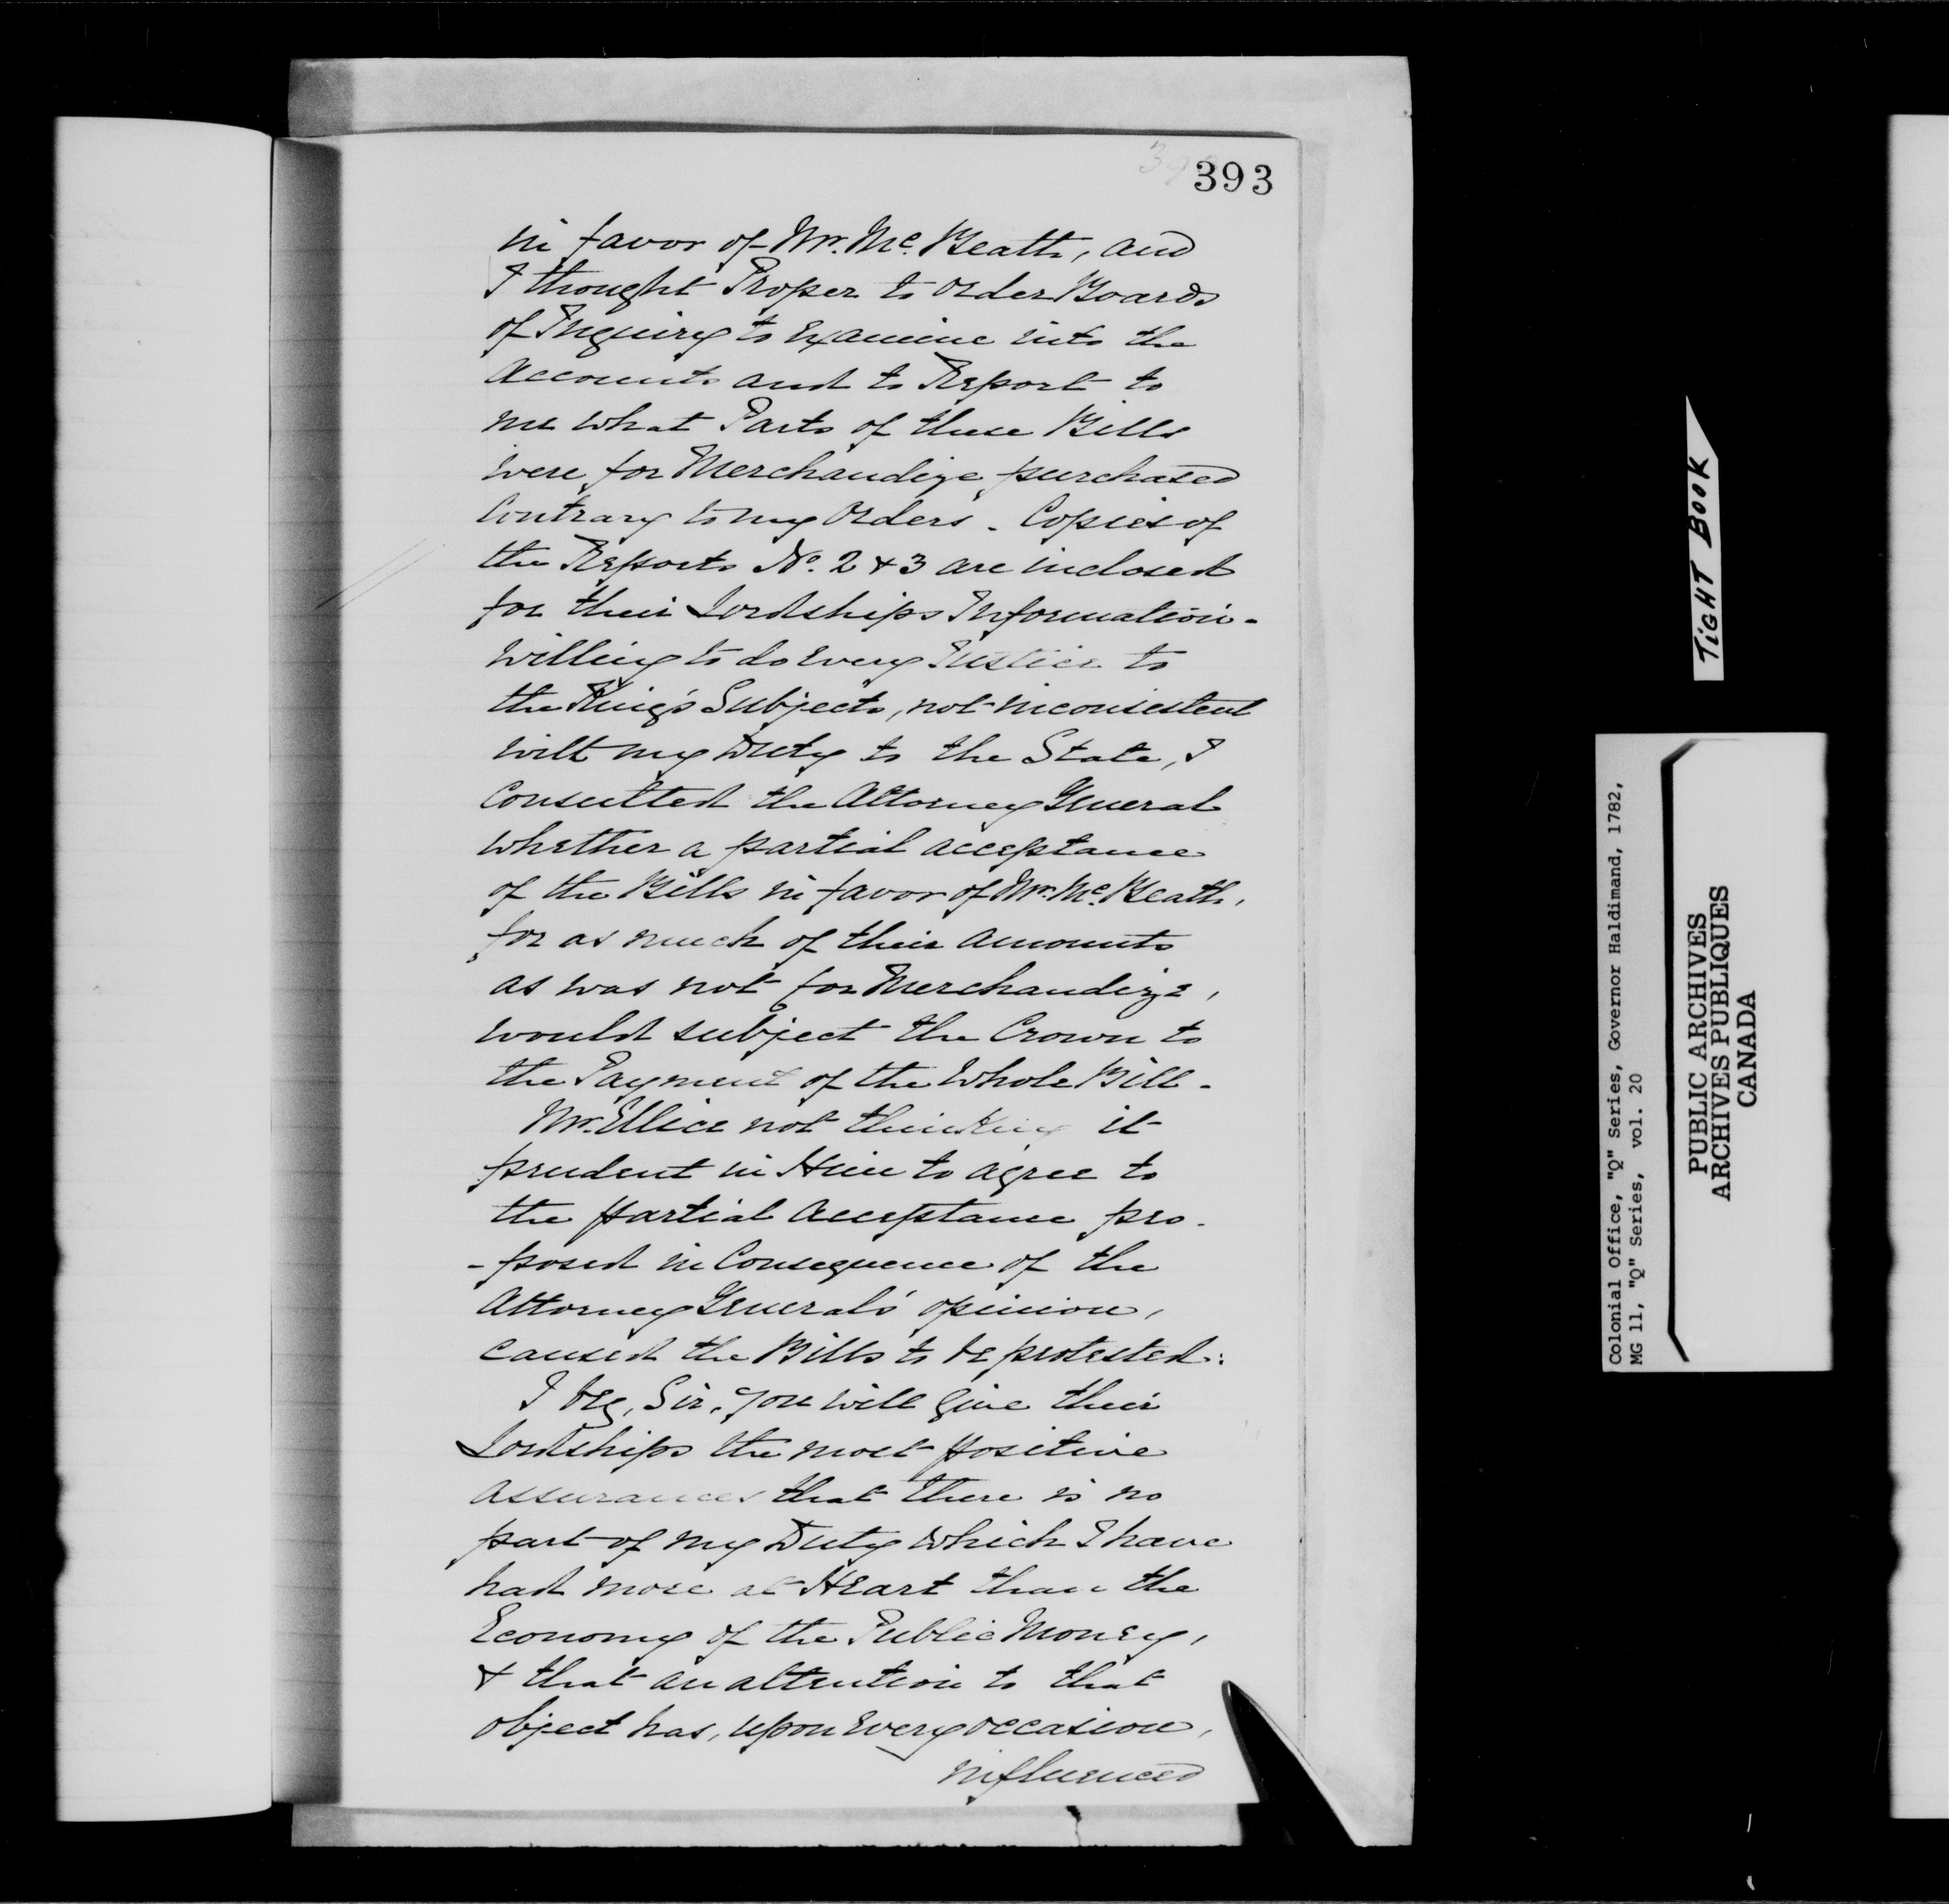 393
in favor of Mr. Mc. Beath, and
I thought Proper to order Boards
of Inquiry to Examine into the
Accounts and to Report to
me what Parts of these Bills
were for Merchandize purchased
Contrary to my Orders. Copies of
the Reports No. 2 & 3 are inclosed
for their Lordships Information.
Willing to do Every Justice to
the King's Subjects, not inconsistent
with my Duty to the State, I
Consulted the Attorney General
whether a partial acceptance
of the Bills in favor of Mr. Mc. Beath,
for as much of their amounts
as was not for Merchandize,
would subject the Crown to
the Payment of the Whole Bill.
Mr. Ellice not thinking it
prudent in Him to agree to
the partial Acceptance pro-
-posed in Consequence of the
Attorney General's opinion,
caused the Bills to be protested:
I beg, Sir, you will give their
Lordships the most positive
assurances that there is no
part of my Duty which I have
had more at Heart than the
Economy of the Public Money,
& that an attention to that
object has, upon Every occasion,
influenced
TIGHT BOOK
Colonial Office, "Q" Series, Governor Haldimand, 1782,
MG 11, "Q" Series, vol. 20
PUBLIC ARCHIVES
ARCHIVES PUBLIQUES
CANADA